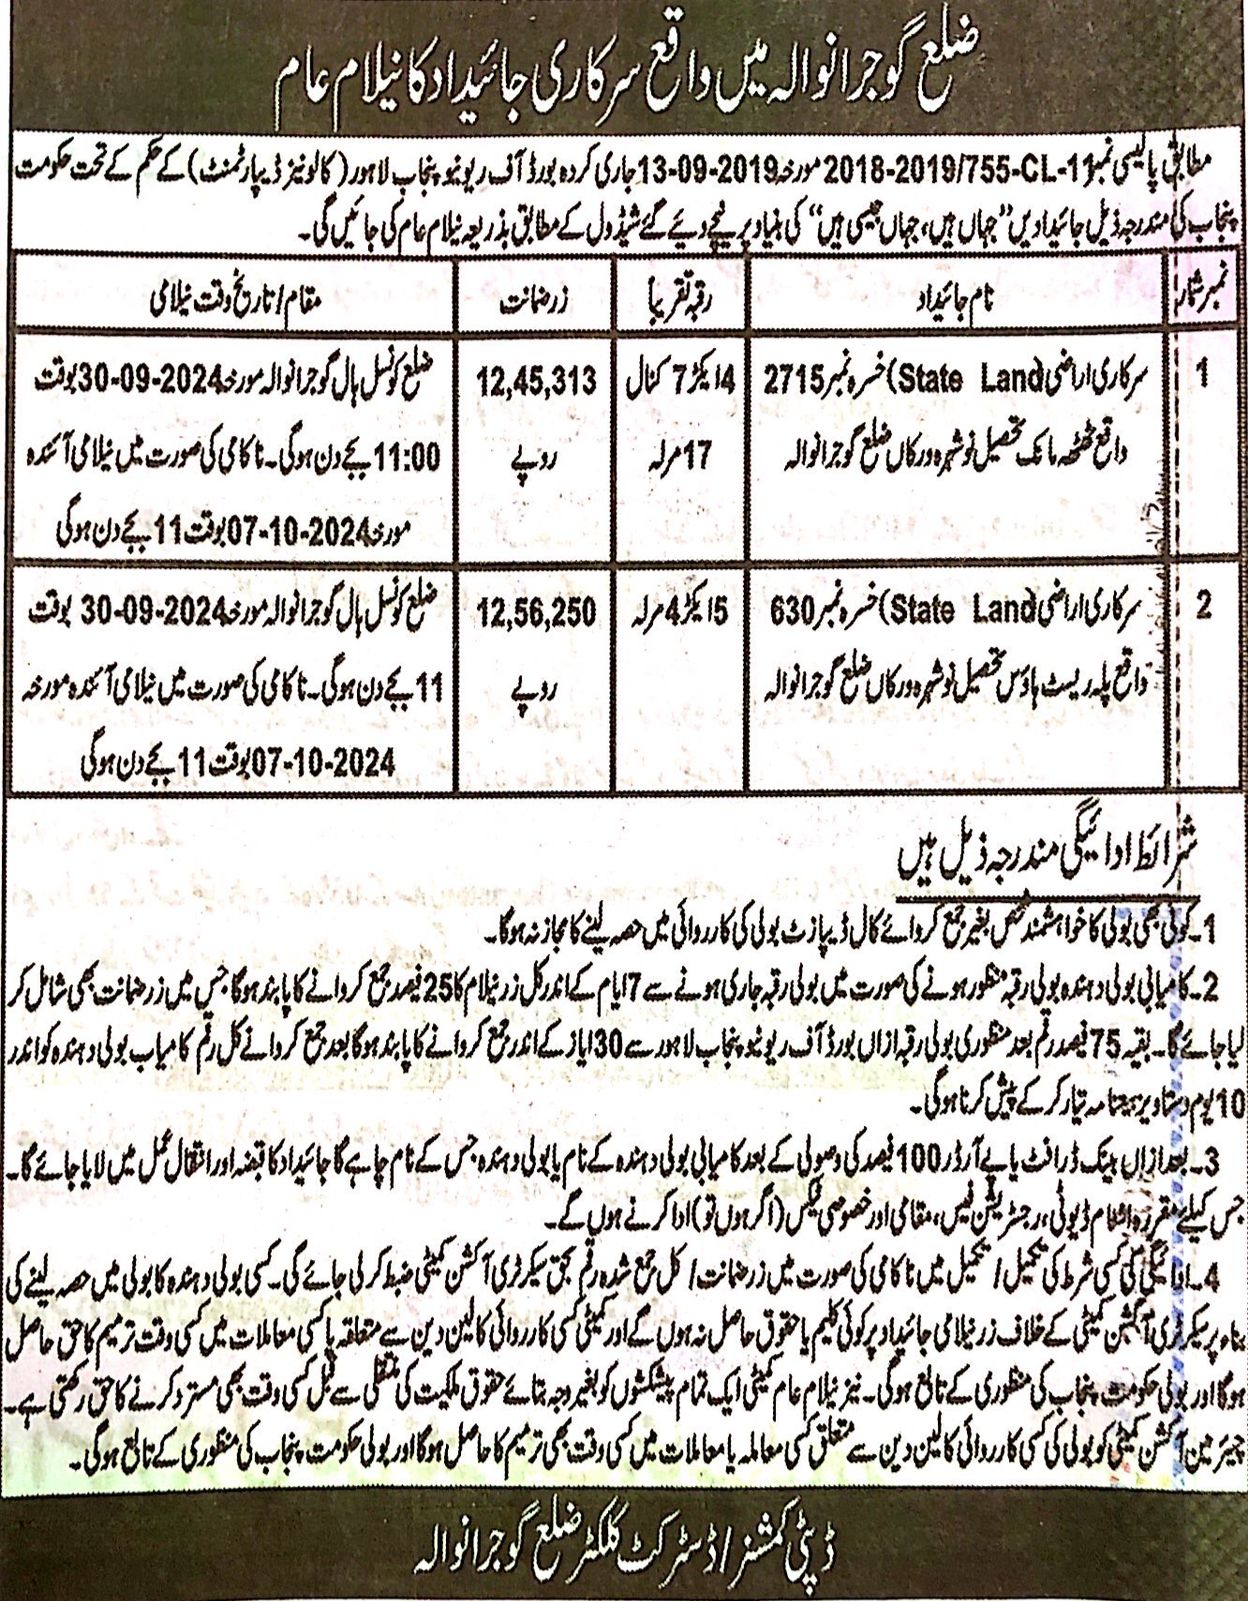 ضلع گوجرانوالہ میں واقع سرکاری جائیداد کا نیلام عام
مطابق پالیسی نمبر 2018-2019/755-CL-11 مورخہ 13-09-2019 جاری کردہ بورڈ آف ریونیو پنجاب لاہور (کالونیز ڈیپارٹمنٹ) کے حکم کے تحت حکومت
پنجاب کی مندرجہ ذیل جائیدادیں "جہاں ہیں، جہاں جیسی ہیں" کی بنیاد پر نیچے دیئے گئے شیڈول کے مطابق بذریعہ نیلام عام کی جائیں گی۔
نمبر شمار نام جائیداد رقبہ تقریباً زر ضمانت مقام/تاریخ وقت نیلامی
1 سرکاری اراضی (State Land) خسرہ نمبر 2715 4 ایکڑ 7 کنال 12,45,313 ضلع کونسل ہال گوجرانوالہ مورخہ 30-09-2024 بوقت
واقع ٹھٹھہ مانک تحصیل نوشہرہ ورکاں ضلع گوجرانوالہ 17 مرلہ روپے 11:00 بجے دن ہوگی۔ ناکامی کی صورت میں نیلامی آئندہ
مورخہ 07-10-2024 بوقت 11 بجے دن ہوگی
2 سرکاری اراضی (State Land) خسرہ نمبر 630 5 ایکڑ 4 مرلہ 12,56,250 ضلع کونسل ہال گوجرانوالہ مورخہ 30-09-2024 بوقت
واقع پلہ ریسٹ ہاؤس تحصیل نوشہرہ ورکاں ضلع گوجرانوالہ روپے 11 بجے دن ہوگی۔ ناکامی کی صورت میں نیلامی آئندہ مورخہ
07-10-2024 بوقت 11 بجے دن ہوگی
شرائط ادائیگی مندرجہ ذیل ہیں
1۔ کوئی بھی بولی کا خواہشمند شخص بغیر جمع کروائے کال ڈیپازٹ بولی کی کارروائی میں حصہ لینے کا مجاز نہ ہوگا۔
2۔ کامیابی بولی دہندہ بولی رقبہ منظور ہونے کی صورت میں بولی رقبہ جاری ہونے سے 7 ایام کے اندر کل زر نیلام کا 25 فیصد جمع کروانے کا پابند ہوگا جس میں زر ضمانت بھی شامل کر
لیا جائے گا۔ بقیہ 75 فیصد رقم بعد منظوری بولی رقبہ ازاں بورڈ آف ریونیو پنجاب لاہور سے 30 ایاز کے اندر جمع کروانے کا پابند ہوگا بعد جمع کروانے کل رقم کامیاب بولی دہندہ کو اندر
10 یوم دستاویز بیعنامہ تیار کر کے پیش کرنا ہوگی۔
3۔ بعد ازاں بینک ڈرافٹ یا پے آرڈر 100 فیصد کی وصولی کے بعد کامیابی بولی دہندہ کے نام یا بولی دہندہ جس کے نام چاہے گا جائیداد کا قبضہ اور انتقال عمل میں لایا جائے گا۔
جس کیلئے مقررہ اسٹام ڈیوٹی، رجسٹریشن فیس، مقامی اور خصوصی ٹیکس (اگر ہوں تو) ادا کرنے ہوں گے۔
4۔ ادائیگی کی کسی شرط کی تکمیل/تکمیل میں ناکامی کی صورت میں زر ضمانت/کل جمع شدہ رقم بحق سیکرٹری آکشن کمیٹی ضبط کر لی جائے گی۔ کسی بولی دہندہ کا بولی میں حصہ لینے کی
بناء پر سیکرٹری آکشن کمیٹی کے خلاف زر نیلامی جائیداد پر کوئی کلیم یا حقوق حاصل نہ ہوں گے اور کمیٹی کسی کارروائی کا لین دین سے متعلقہ یا کسی معاملات میں کسی وقت ترمیم کا حق حاصل
ہوگا اور بولی حکومت پنجاب کی منظوری کے تابع ہوگی۔ نیز نیلام عام کمیٹی ایک تمام پیشکشوں کو بغیر وجہ بتائے حقوق ملکیت کی منتقلی سے قبل کسی وقت بھی مسترد کرنے کا حق رکھتی ہے۔
چیئرمین آکشن کمیٹی کو بولی کی کسی کارروائی کا لین دین سے متعلق کسی معاملہ یا معاملات میں کسی وقت بھی ترمیم کا حاصل ہوگا اور بولی حکومت پنجاب کی منظوری کے تابع ہوگی۔
ڈپٹی کمشنر/ڈسٹرکٹ کلکٹر ضلع گوجرانوالہ